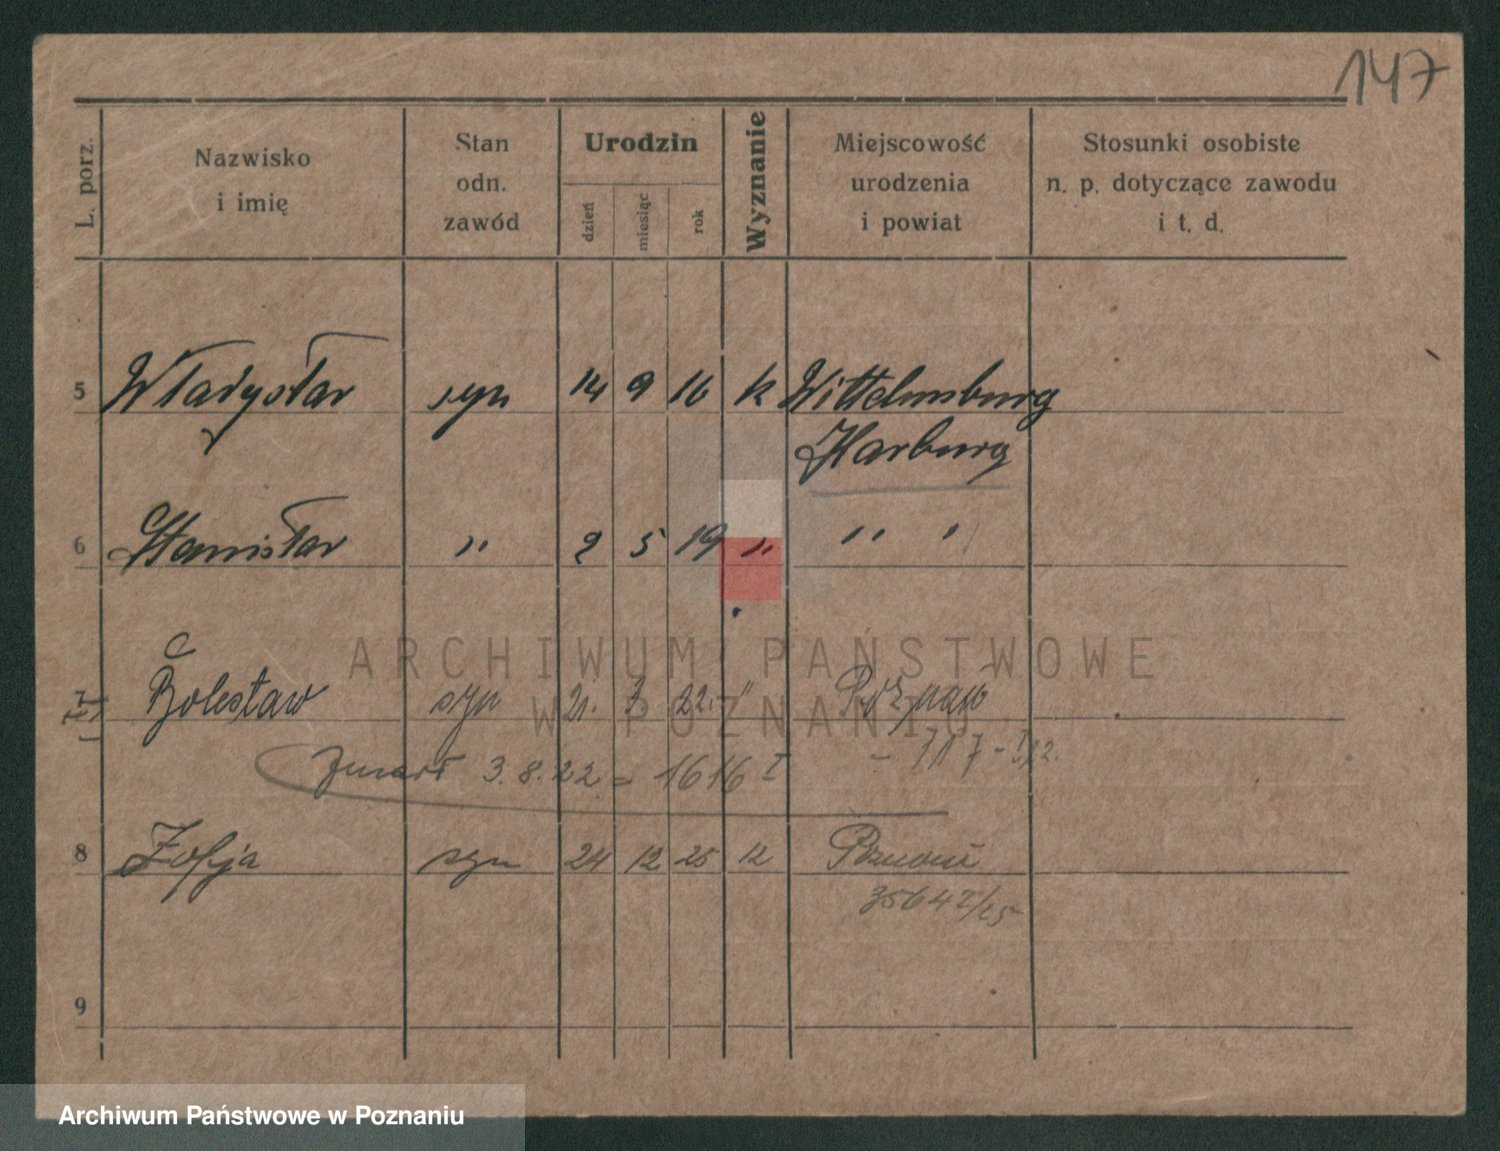 147
L. porz.
Nazwisko
i imię
Stan
odn.
zawód
Urodzin
dzień
miesiąc
rok
Wyznanie
Miejscowość
urodzenia
i powiat
Stosunki osobiste
n. p. dotyczące zawodu
i t. d.
5 Władysław syn 14 9 16 k Wittelmsburg
Harburg
6 Stanisław " 2 5 19 " " "
7 Bolesław syn 21. 3 22. " Poznań
zmarł 3.8.22 = 1616 I
8 Zofja syn 24 12 25 k Poznań
3564 I/25
9
ARCHIWUM PAŃSTWOWE
W POZNANIU
Archiwum Państwowe w Poznaniu